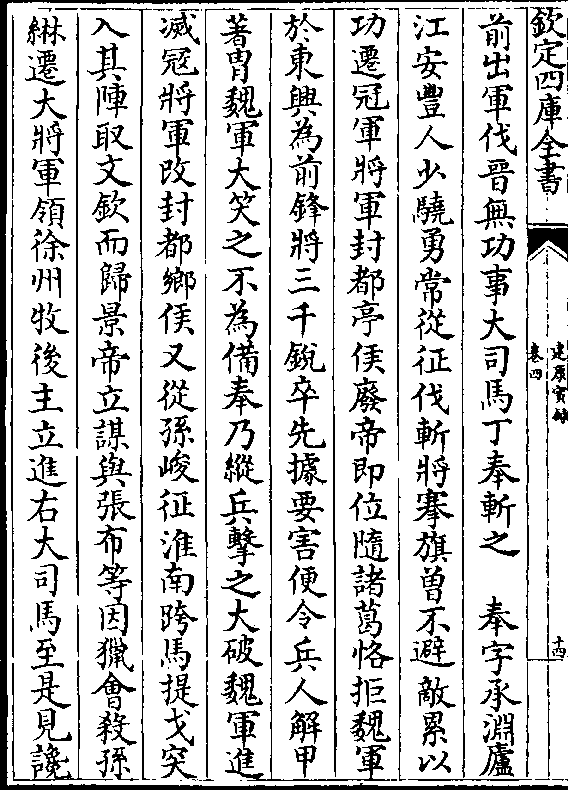 欽定四庫全書
建康實錄
卷四
十四
前出軍伐晉無功事大司馬丁奉斬之　奉字承淵廬
江安豐人少驍勇常從征伐斬將搴旗曽不避敵累以
功遷冠軍將軍封都亭侯廢帝即位隨諸葛恪拒魏軍
於東興為前鋒將三千銳卒先據要害便令兵人解甲
著胄魏軍大笑之不為備奉乃縱兵擊之大破魏軍進
滅冦將軍改封都鄉侯又從孫峻征淮南跨馬提戈突
入其陣取文欽而歸景帝立謀與張布等因獵會殺孫
綝遷大將軍領徐州牧後主立進右大司馬至是見讒